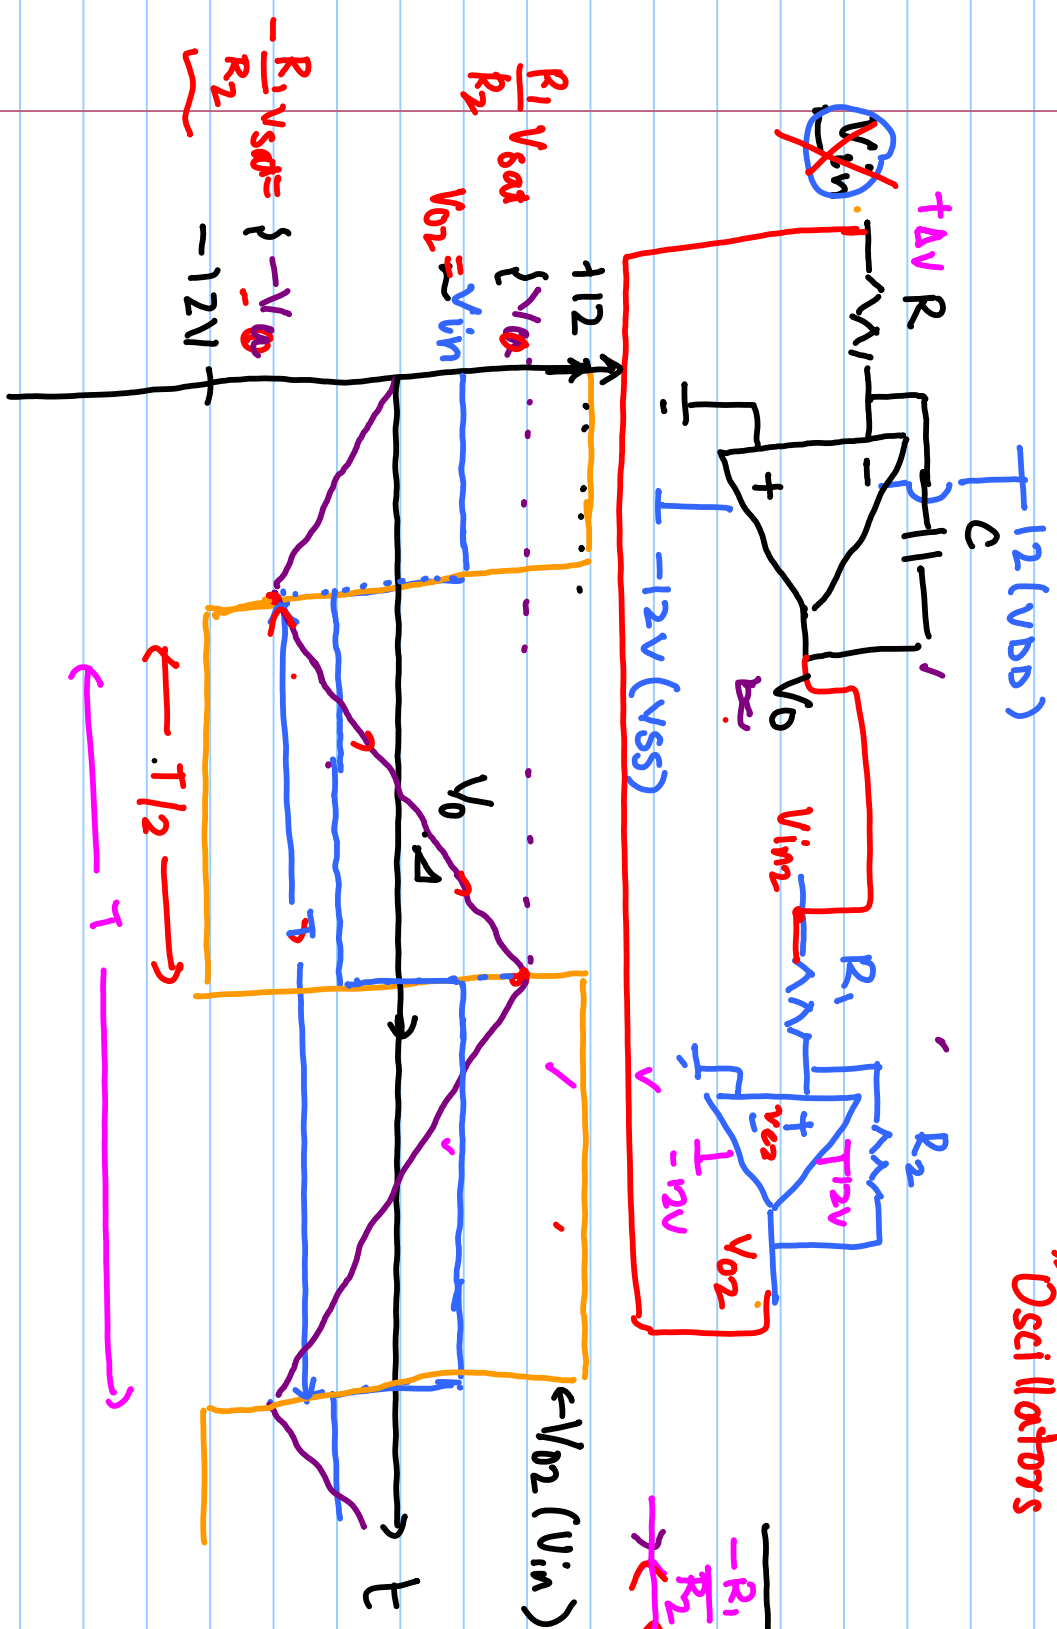 Oscillators
+12 (VDD)
C
+ΔV
R
Vin
−
+
Vo
-12V (VSS)
Vin2
R1
R2
+
−
Ve2
+12V
-12V
Vo2
-R1
R2
+12
R1/R2 Vsat
{ Vo
Vo2 = Vin
-R1/R2 Vsat = { -Vo
-12V
Vo
Δ
T
←Vo2 (Vin)
t
T/2
T